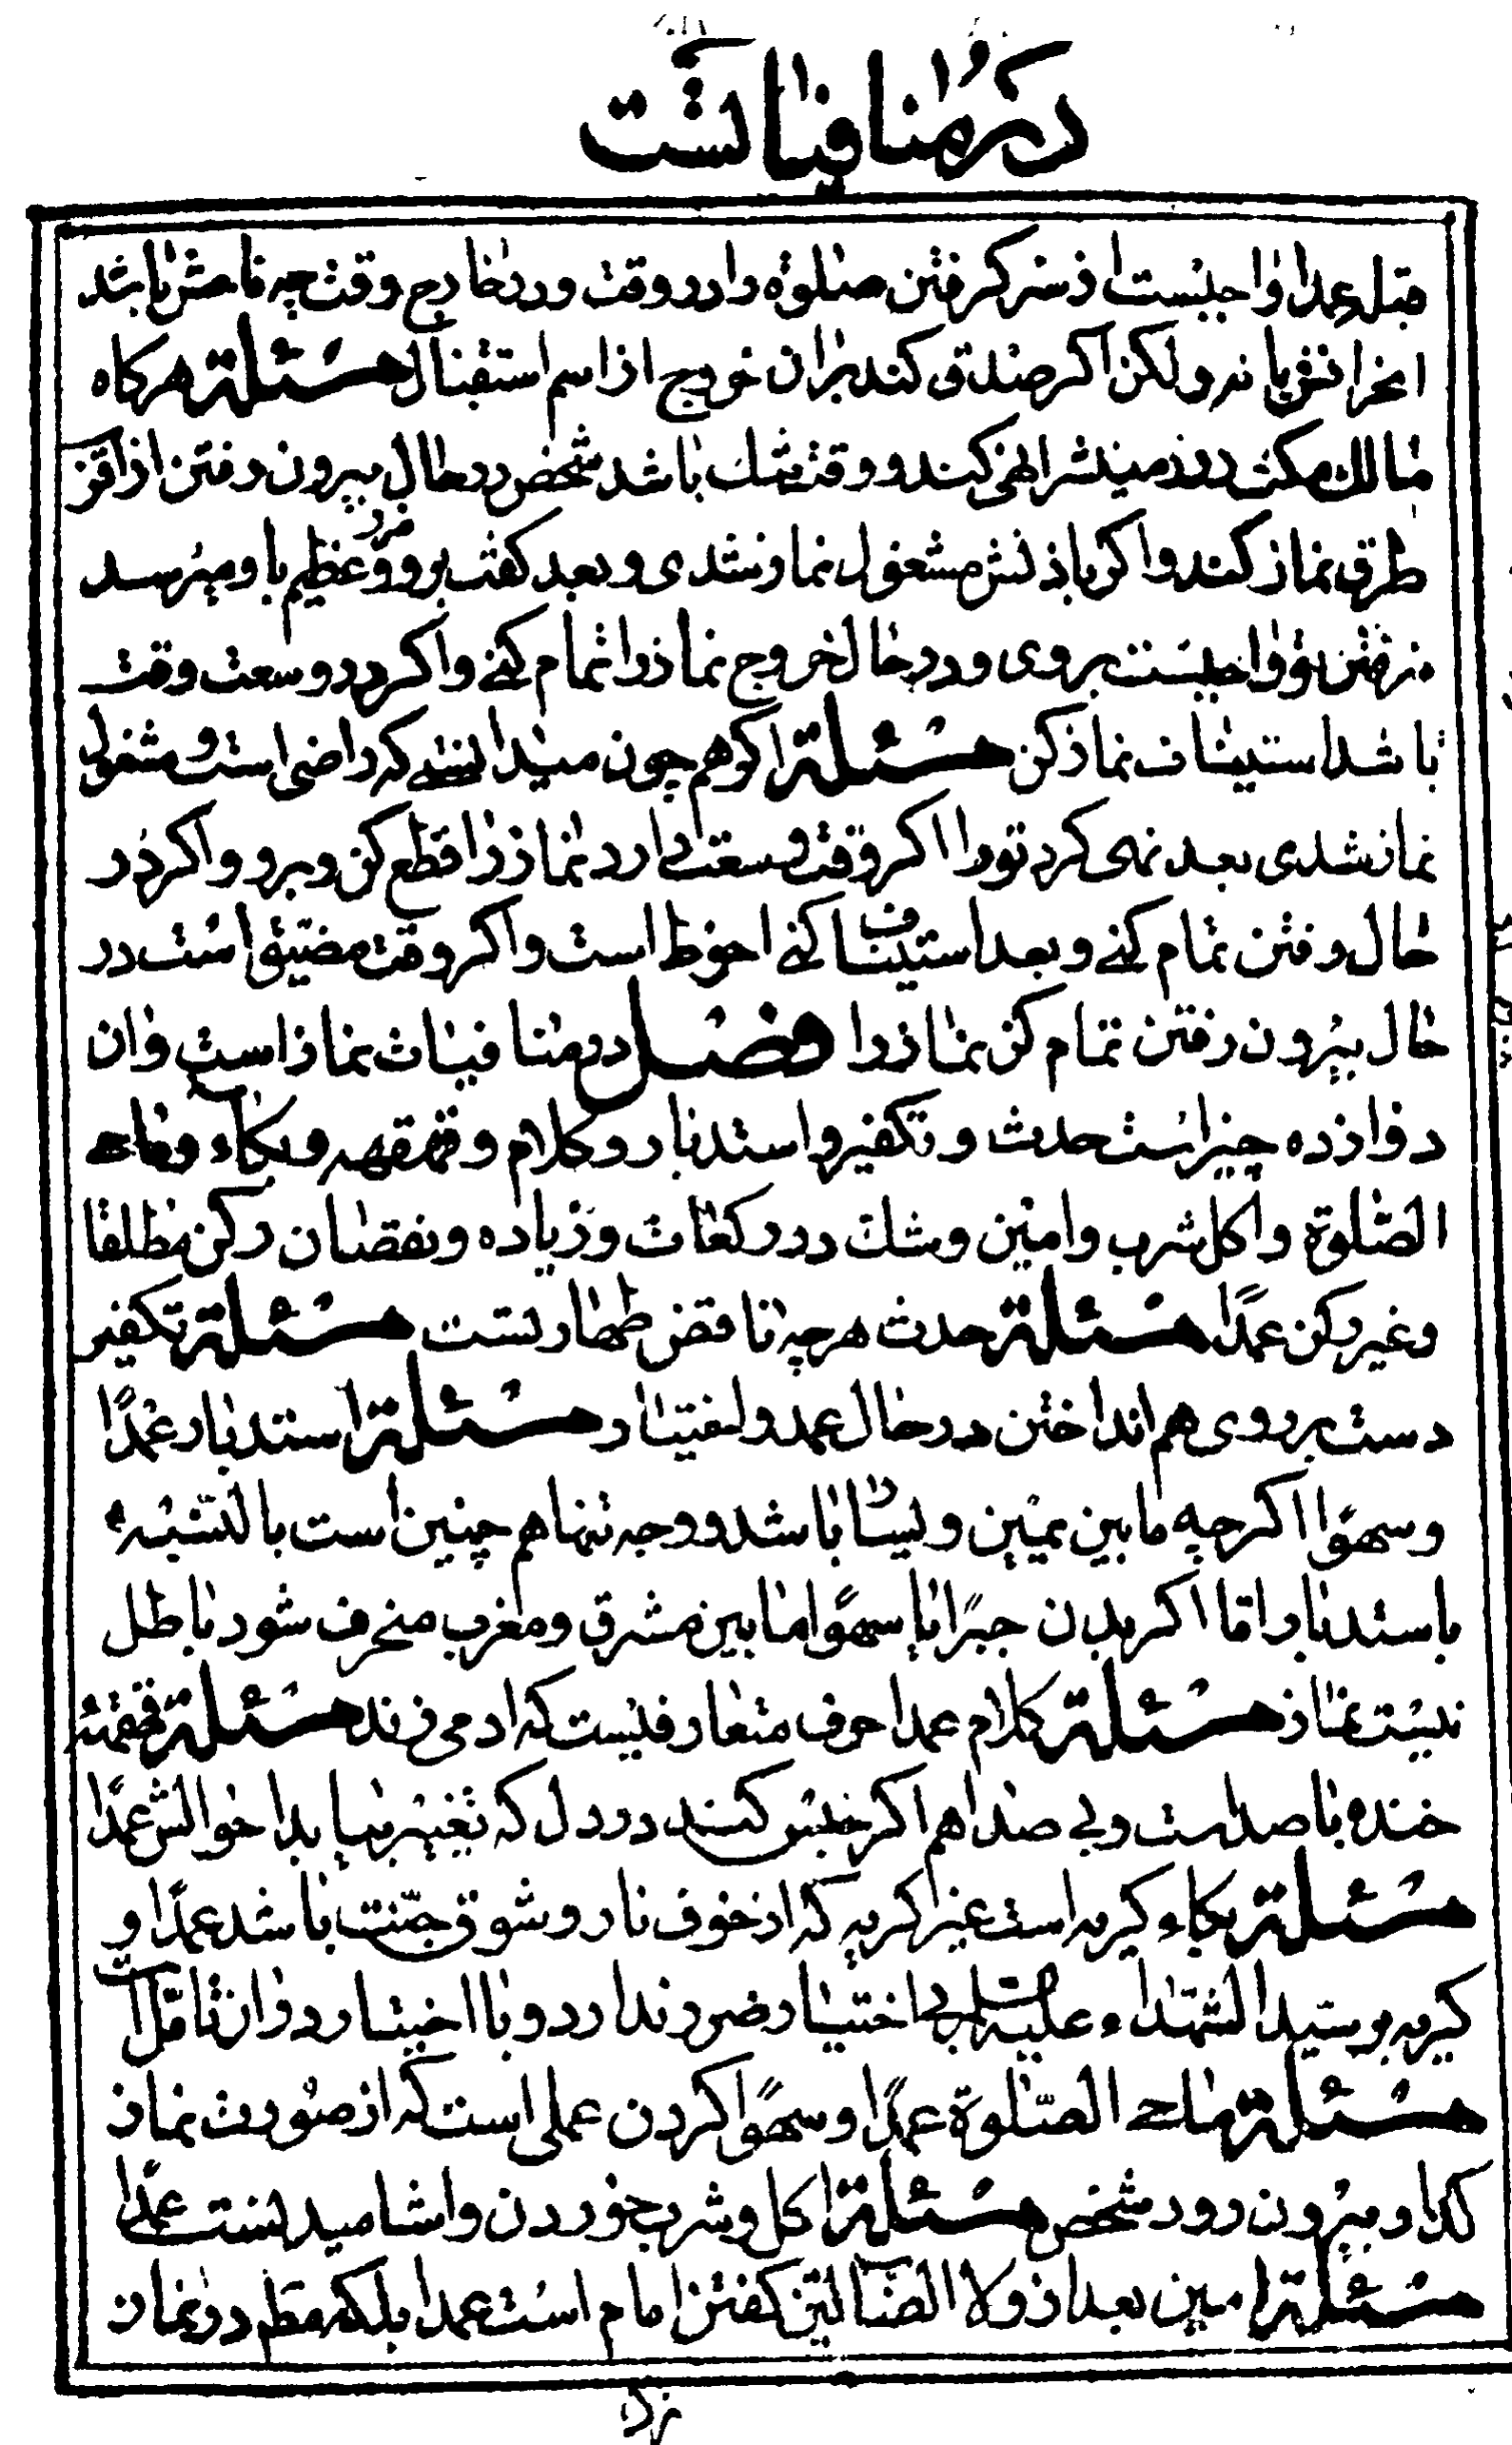 در منافیاتست
قبله عمدا واجبست از سر گرفتن صلوة را در وقت و در خارج وقت چه فاحش باشد
انحرافش یا نه ولکن اگر صدق کند بر ان خروج از اسم استقبال مسئلة هرگاه
مالك مکث در زمینش را نهی کند و وقت تنك باشد شخص در حال بیرون رفتن از اقرب
طرق نماز کند و اگر باذنش مشغول نماز شدی و بعد گفت برو و ضرر عظیم باو میرسد
نرفتن تو واجبست بروی و در حال خروج نماز را تمام کنی و اگر در وسعت وقت
باشد استیناف نماز کن مسئلة اگر هم چون میدانستی که راضی است و مشغول
نماز شدی بعد نهی کرد تو را اگر وقت وسعت دارد نماز را قطع کن و برو و اگر در
حال رفتن تمام کنی و بعد استیناف کنی احوط است و اگر وقت مضیق است در
حال بیرون رفتن تمام کن نماز را فصل در منافیات نماز است و ان
دوازده چیز است حدث و تکفیر و استدبار و کلام و قهقهه و بکاء و ماحی
الصلوة و اکل شرب و امین و شك در رکعات و زیاده و نقصان رکن مطلقا
و غیر رکن عمدًا مسئلة حدث هرچه ناقض طهارتست مسئلة تکفیر
دست بر روی هم انداختن در حال عمد و اختیار مسئلة استدبار عمدًا
و سهوًا اگرچه مابین یمین و یسار باشد و وجه تنها هم چنین است بالنسبه
باستدبار اما اگر بدن جبرًا یا سهوًا مابین مشرق و مغرب منحرف شود باطل
نیست نماز مسئلة کلام عمدا حرف متعارفیست که ادمی زند مسئلة قهقهه
خنده با صداست و بی صدا هم اگر حبس کند در دل که تغییر بیابد احوالش عمدًا
مسئلة بکاء گریه است غیر گریه که از خوف نار و شوق جنت باشد عمدًا و
گریه بر سید الشهداء علیه السلام بی اختیار ضرر ندارد و با اختیار در ان تامل است
مسئلة ماحی الصلوة عمدًا و سهوًا کردن عملی است که از صورت نماز
گذار بیرون رود شخص مسئلة اکل و شرب خوردن و اشامیدنست عمدًا
مسئلة امین بعد از ولا الضالین گفتن امام است عمدا بلکه مطم در نماز